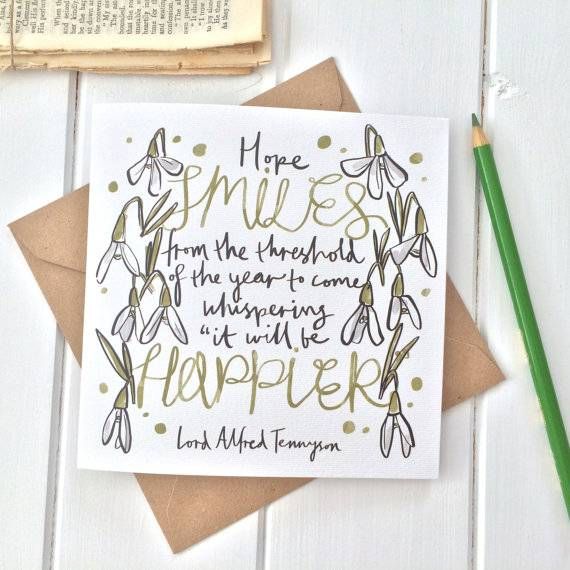 Hope
SMILES
from the threshold
of the year to come
whispering
"it will be
HAPPIER"
Lord Alfred Tennyson